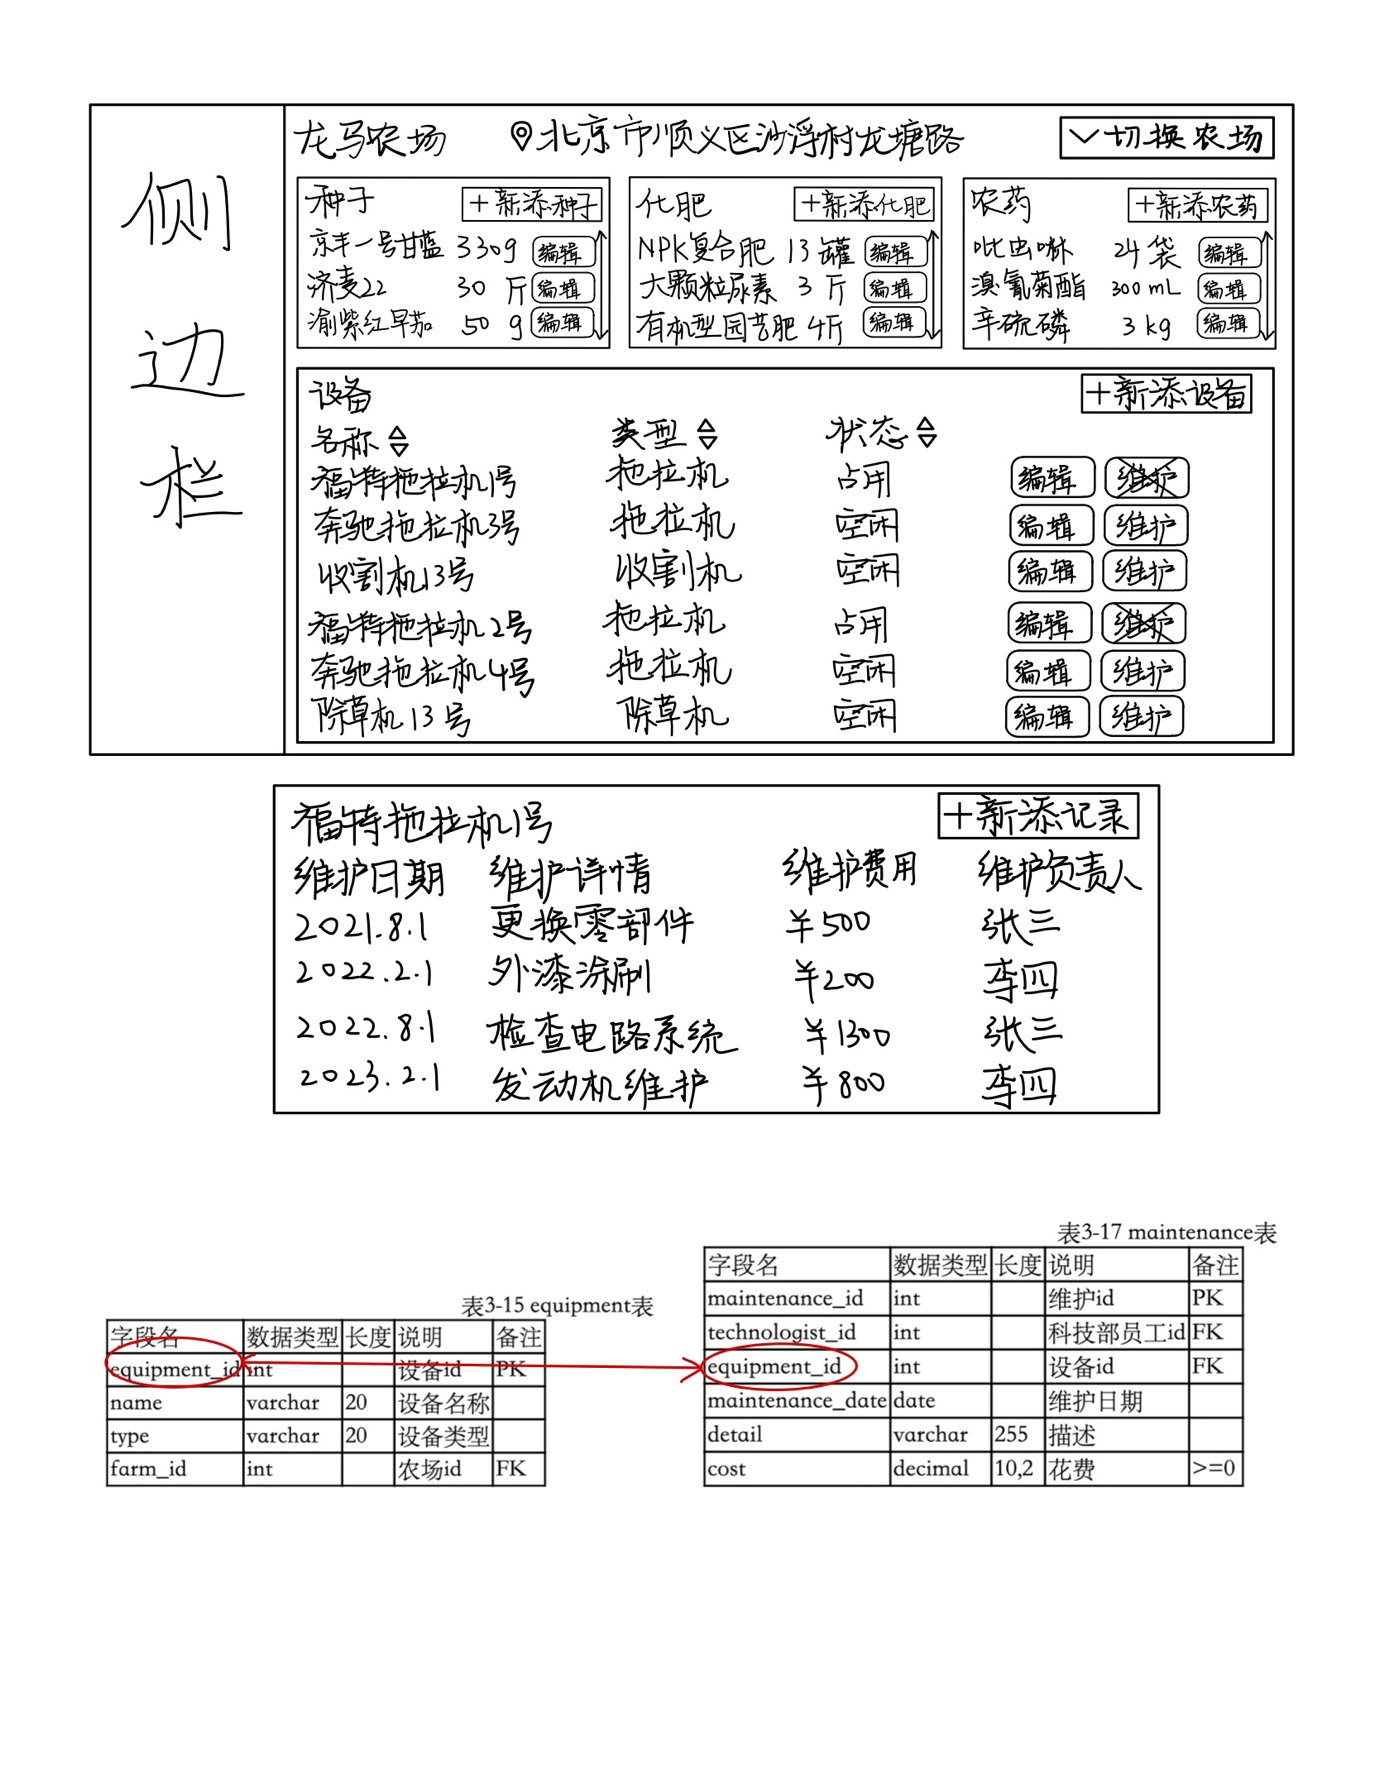 侧边栏
龙马农场 北京市顺义区沙浮村龙塘路 切换农场
种子 +新添种子
京丰一号甘蓝 330g 编辑
济麦22 30 斤 编辑
渝紫红早茄 50 g 编辑
化肥 +新添化肥
NPK复合肥 13 罐 编辑
大颗粒尿素 3 斤 编辑
有机型园艺肥 4斤 编辑
农药 +新添农药
吡虫啉 24 袋 编辑
溴氰菊酯 300 mL 编辑
辛硫磷 3 kg 编辑
设备 +新添设备
名称 类型 状态
福特拖拉机1号 拖拉机 占用 编辑 维护
奔驰拖拉机3号 拖拉机 空闲 编辑 维护
收割机13号 收割机 空闲 编辑 维护
福特拖拉机2号 拖拉机 占用 编辑 维护
奔驰拖拉机4号 拖拉机 空闲 编辑 维护
除草机13号 除草机 空闲 编辑 维护
福特拖拉机1号 +新添记录
维护日期 维护详情 维护费用 维护负责人
2021.8.1 更换零部件 ¥500 张三
2022.2.1 外漆涂刷 ¥200 李四
2022.8.1 检查电路系统 ¥1300 张三
2023.2.1 发动机维护 ¥800 李四
表3-15 equipment表
字段名 数据类型 长度 说明 备注
equipment_id int 设备id PK
name varchar 20 设备名称
type varchar 20 设备类型
farm_id int 农场id FK
表3-17 maintenance表
字段名 数据类型 长度 说明 备注
maintenance_id int 维护id PK
technologist_id int 科技部员工id FK
equipment_id int 设备id FK
maintenance_date date 维护日期
detail varchar 255 描述
cost decimal 10,2 花费 >=0